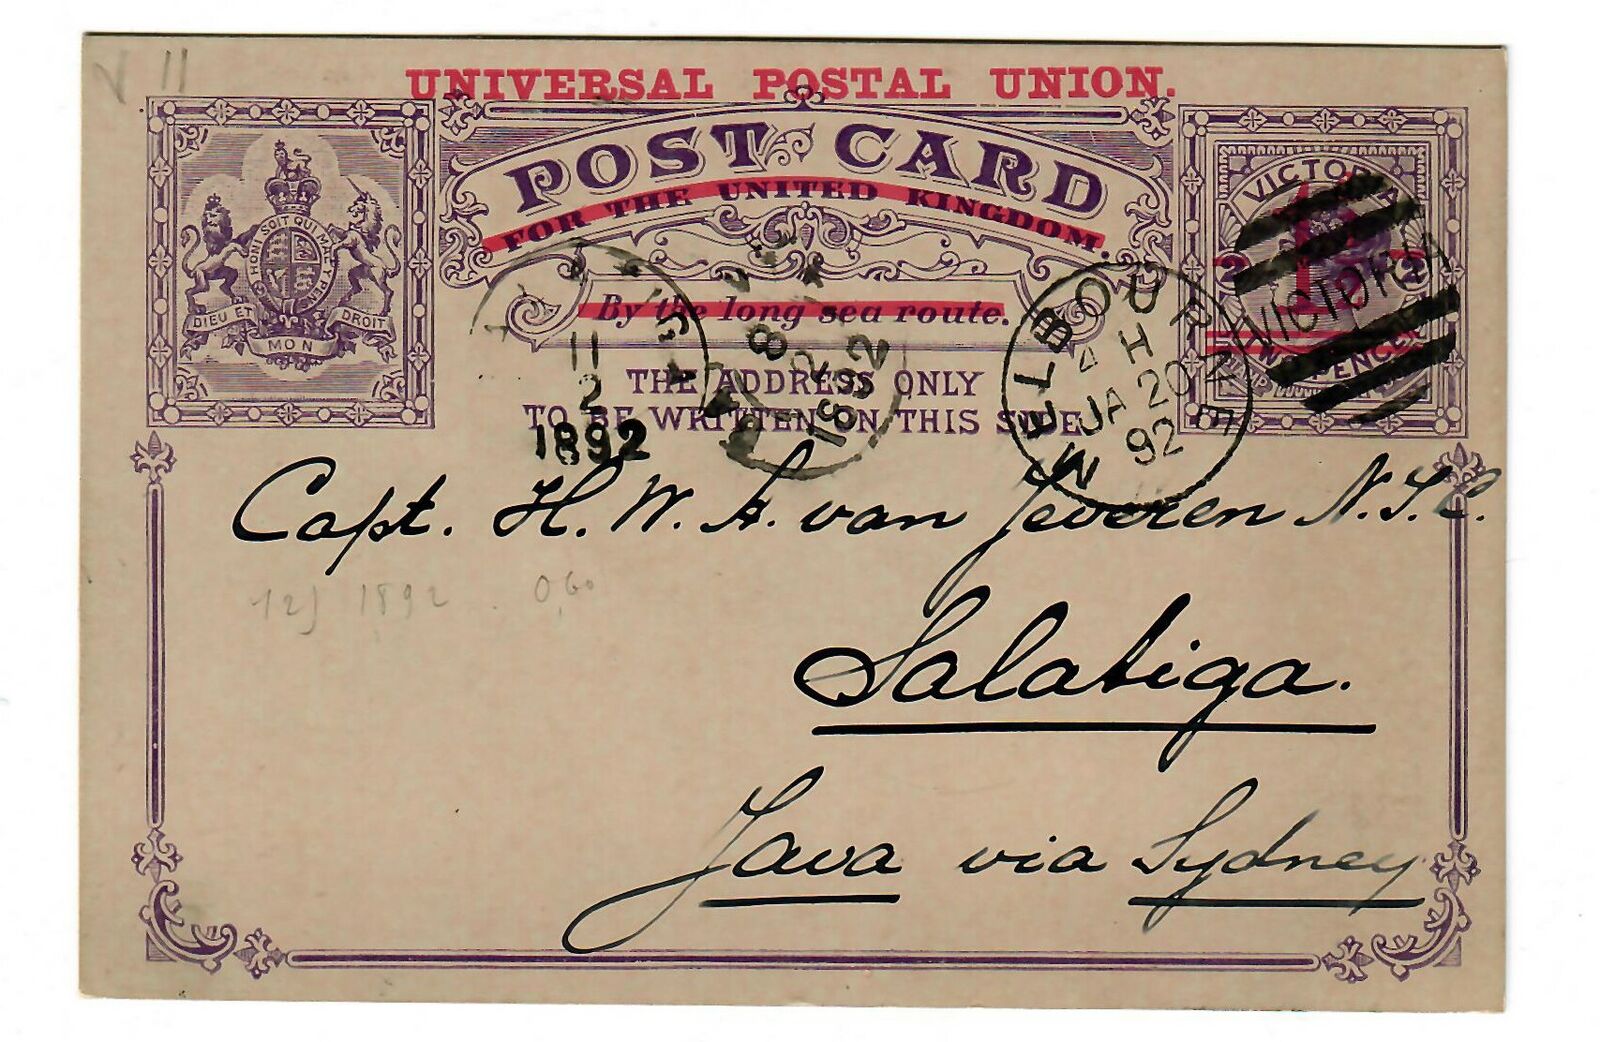 V 11
UNIVERSAL POSTAL UNION.
POST CARD
FOR THE UNITED KINGDOM.
By the long sea route.
THE ADDRESS ONLY
TO BE WRITTEN ON THIS SIDE.
HONI SOIT QUI MAL Y PENSE
DIEU ET MON DROIT
VICTORIA
2 2
TWO PENCE
VICTORIA
MELBOURNE
4 H
JA 20
92
11
2
1892
8
2
1892
Capt. H. W. A. van Jeveren N.I.L.
12J 1892 . 0,60
Salatiga.
Java via Sydney